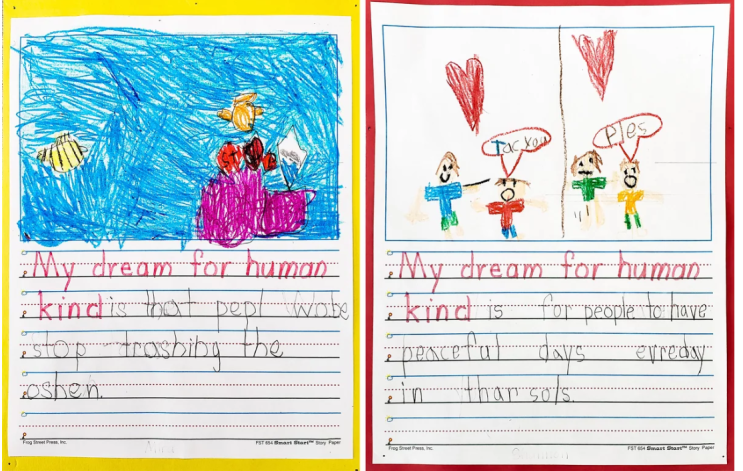 ST
My dream for human
kind is that pepl wobe
stop trashing the
oshen.
Frog Street Press, Inc.
FST 654 Smart Start™ Story Paper
Tac You
Ples
My dream for human
kind is for people to have
peaceful days evreday
in thar sols.
Frog Street Press, Inc.
FST 654 Smart Start™ Story Paper